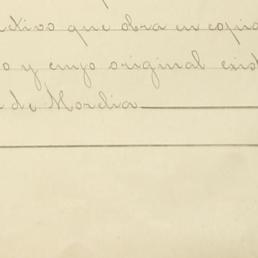 ctivo que obra en copia
o y cuyo original exist
a de Mordia